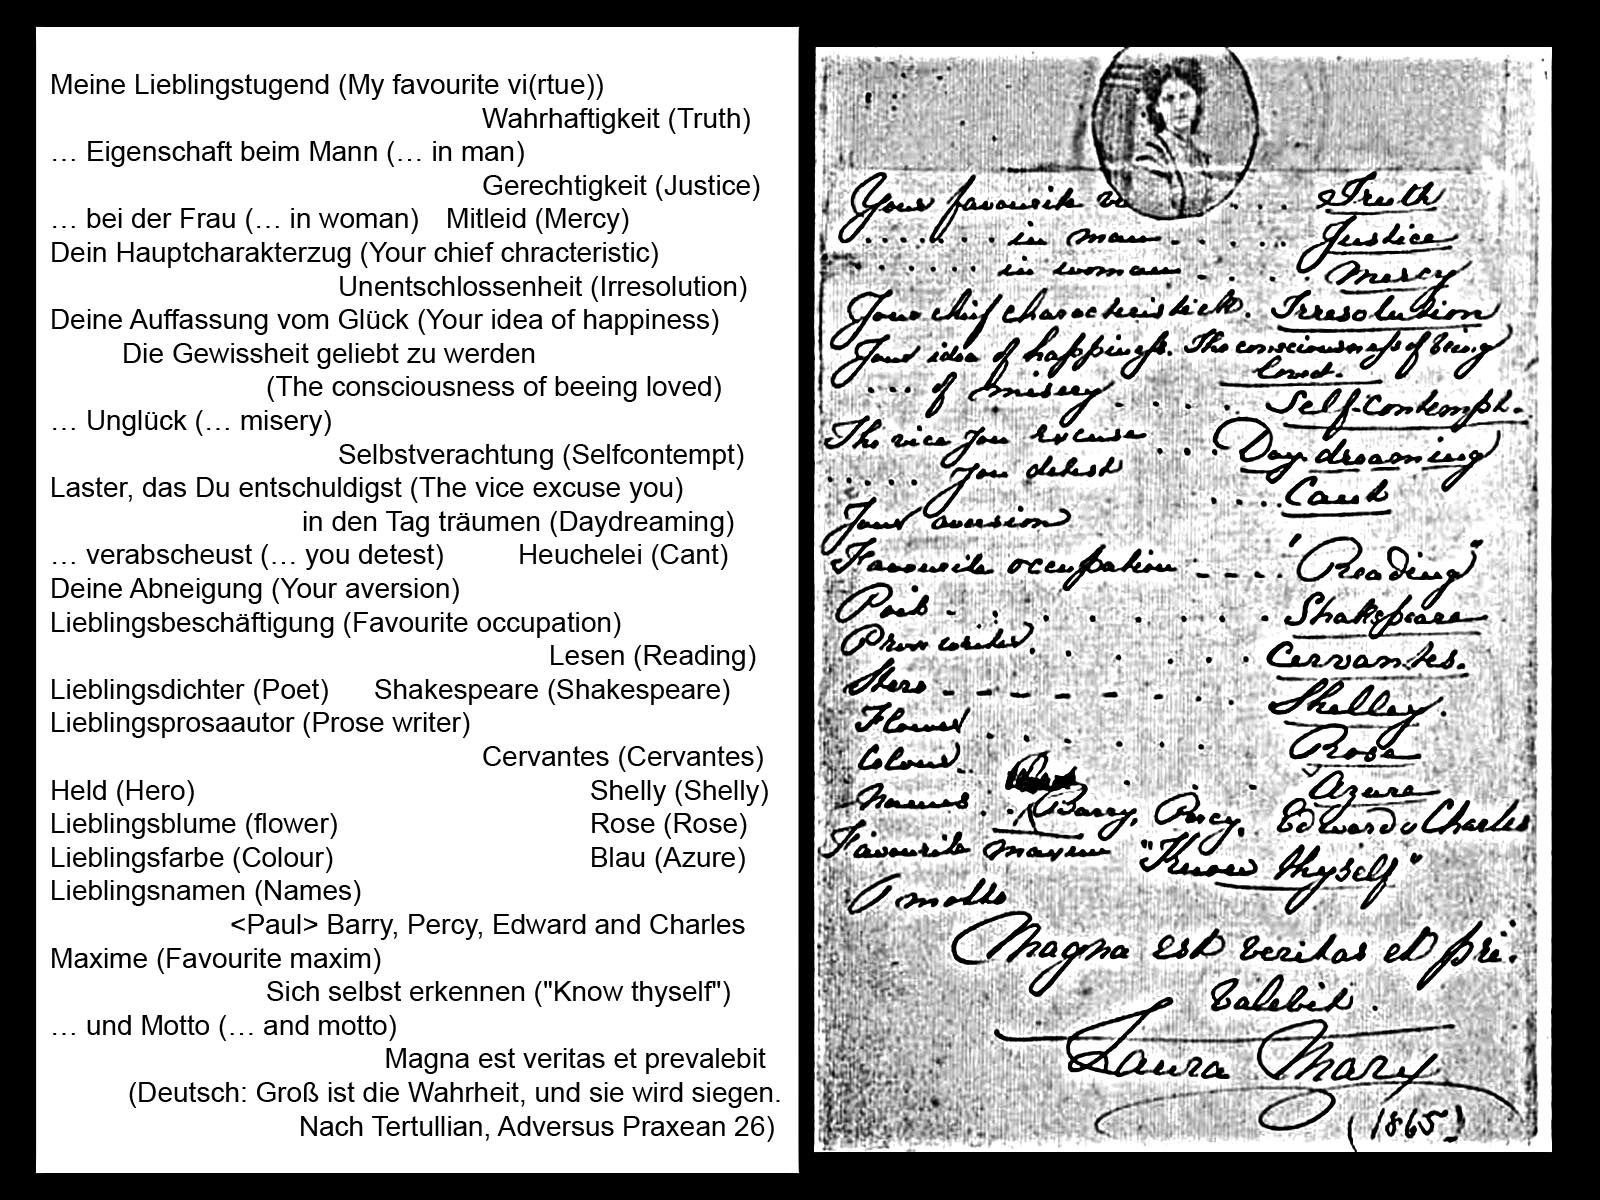 Meine Lieblingstugend (My favourite vi(rtue))
Wahrhaftigkeit (Truth)
… Eigenschaft beim Mann (… in man)
Gerechtigkeit (Justice)
… bei der Frau (… in woman) Mitleid (Mercy)
Dein Hauptcharakterzug (Your chief chracteristic)
Unentschlossenheit (Irresolution)
Deine Auffassung vom Glück (Your idea of happiness)
Die Gewissheit geliebt zu werden
(The consciousness of beeing loved)
… Unglück (… misery)
Selbstverachtung (Selfcontempt)
Laster, das Du entschuldigst (The vice excuse you)
in den Tag träumen (Daydreaming)
… verabscheust (… you detest) Heuchelei (Cant)
Deine Abneigung (Your aversion)
Lieblingsbeschäftigung (Favourite occupation)
Lesen (Reading)
Lieblingsdichter (Poet) Shakespeare (Shakespeare)
Lieblingsprosaautor (Prose writer)
Cervantes (Cervantes)
Held (Hero) Shelly (Shelly)
Lieblingsblume (flower) Rose (Rose)
Lieblingsfarbe (Colour) Blau (Azure)
Lieblingsnamen (Names)
<Paul> Barry, Percy, Edward and Charles
Maxime (Favourite maxim)
Sich selbst erkennen ("Know thyself")
… und Motto (… and motto)
Magna est veritas et prevalebit
(Deutsch: Groß ist die Wahrheit, und sie wird siegen.
Nach Tertullian, Adversus Praxean 26)
Your favourite vi . . . Truth
. . . . . . . in man . . . . . . Justice
. . . . . . in woman - . . . Mercy
Your chief characteristick. Irresolution
Your idea of happiness. The consciousness of being
loved.
. . . . of misery . . . . . Self-contempt.
The vice you excuse . . . Day dreaming
. . . . . you detest . . . . . Cant
Your aversion
Favourite occupation - - - . "Reading"
Poet - . . . . . . . . Shakspeare
Prose writer. . . . . . . Cervantes.
Hero - - - - - - . . Shelley.
Flower . . . . . . Rose
Colour . . . . . Azure
Names . . . Barry, Percy, Edward & Charles
Favourite maxim "Know thyself"
& motto
Magna est veritas et præ-
valebit.
Laura Mary
(1865)